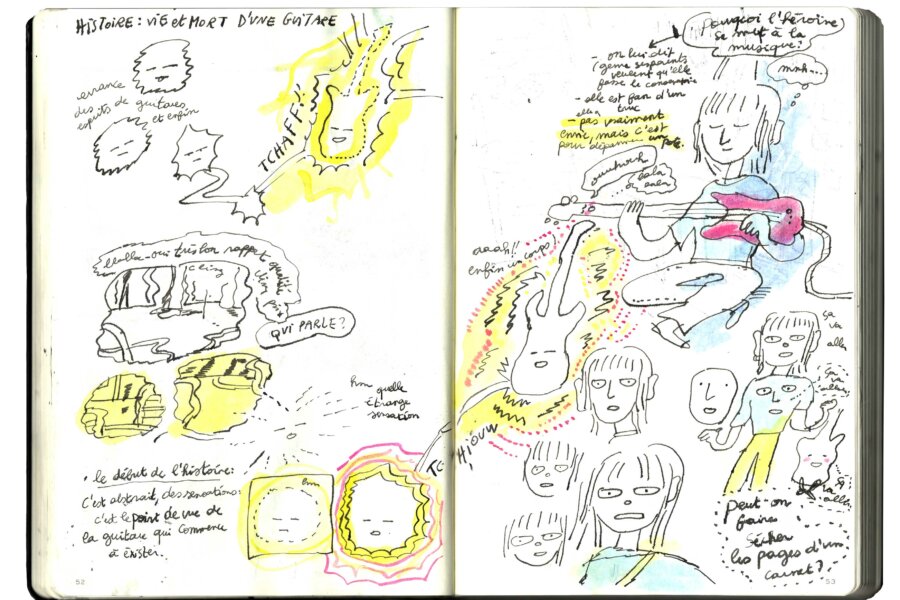 HISTOIRE : VIE et MORT D'UNE GUITARE
errance
des esprits de guitares
et enfin
TCHAFF
rapport qualité
prix
cling
QUI PARLE ?
hm quelle
étrange
sensation
le début de l'histoire :
C'est abstrait, des sensations :
c'est le point de vue de
la guitare qui commence
à exister.
hm
TC
Pourquoi l'héroïne
se met à la
musique ?
- on lui dit
genre ses parents
veulent qu'elle
fasse le conservatoire
- elle est fan d'un
truc
- pas vraiment
envie, mais c'est
pour dépanner un
pote.
mmh...
lala
aaah!!
enfin un corps !
HIOUW !
ça
va
aller
ça
va
aller
ça
va
aller
Peut-on
faire
sécher
les pages d'un
carnet ?
52
53